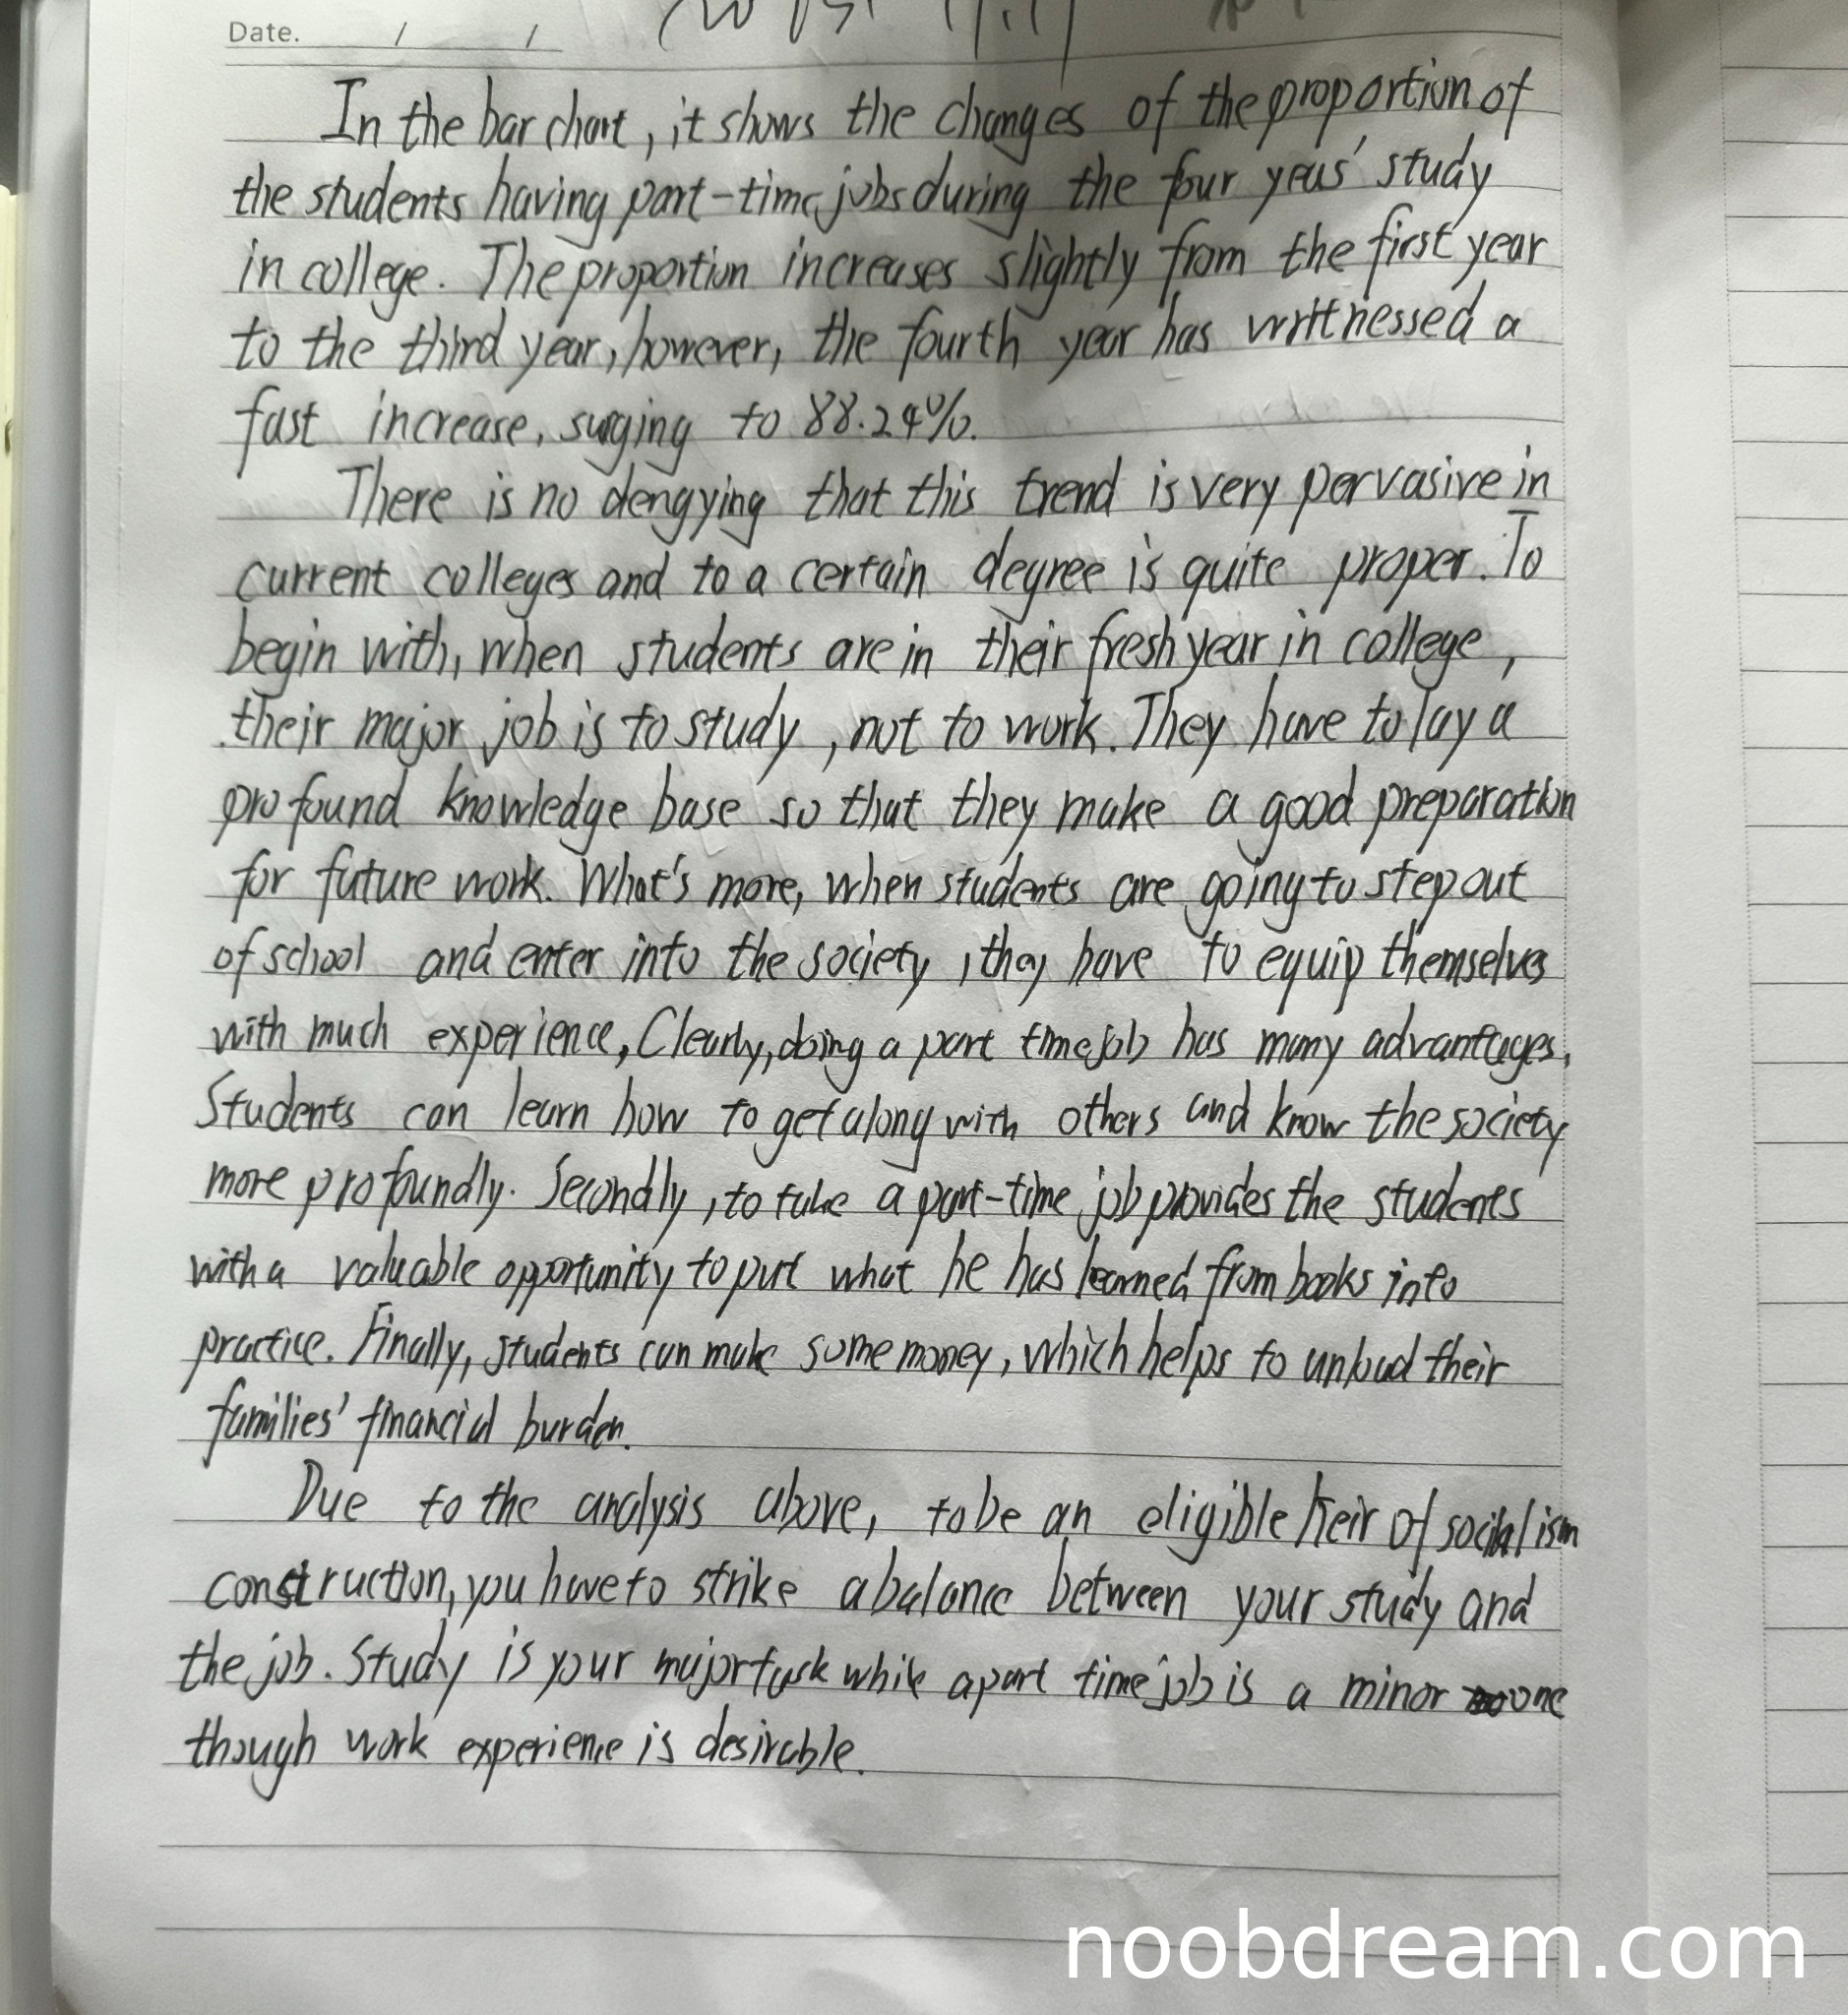 Date. / /
In the bar chart, it shows the changes of the proportion of
the students having part-time jobs during the four years' study
in college. The proportion increases slightly from the first year
to the third year, however, the fourth year has writtnessed a
fast increase, surging to 88.24%.
There is no dengying that this trend is very pervasive in
current colleges and to a certain degree is quite proper. To
begin with, when students are in their fresh year in college,
their major job is to study, not to work. They have to lay a
profound knowledge base so that they make a good preparation
for future work. What's more, when students are going to step out
of school and enter into the society, they have to equip themselves
with much experience, Clearly, doing a part time job has many advantages.
Students can learn how to get along with others and know the society
more profoundly. Secondly, to take a part-time job provides the students
with a valuable opportunity to put what he has learned from books into
practice. Finally, students can make some money, which helps to unload their
families' financial burden.
Due to the analysis above, to be an eligible heir of socialism
construction, you have to strike a balance between your study and
the job. Study is your major task while a part time job is a minor one
though work experience is desirable.
noobdream.com